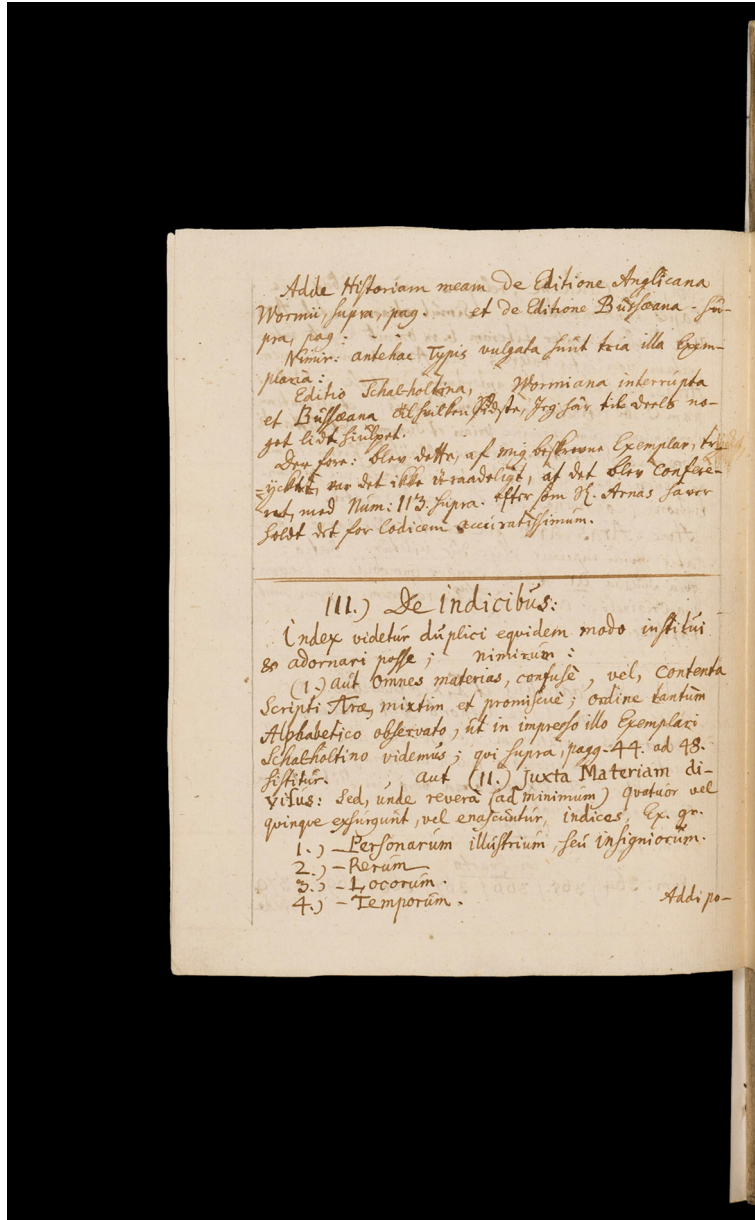 Adde Historiam meam De Editione Anglicana
Wormii, supra, pag. et de Editione Bussæana - su-
pra, pag:
Nimir: antehac Typis vulgata sunt tria illa Exem-
plaria:
Editio Schal-holtina, Wormiana interrupta
et Bussæana til hvilken Sidste, Jeg har til deels no-
get lidt hiulpet.
Der fore: blev dette, af mig beskrevne Exemplar,
-ycktt, var det ikke uraadeligt, at det blev confere-
ret, med Num: 113. supra. efter som Sl. Arnas haver
holdt det for Codicem accuratissimum.
III.) De Indicibus:
Index videtur duplici eqvidem modo institui
& adornari posse; nimirum:
(1.) aut omnes materias, confusè, vel, contenta
Scripti Aræ, mixtim et promiscuè; ordine tantùm
Alphabetico observato, ut in impresso illo Exemplari
Schal-holtino videmus; qvi supra, pagg. 44. ad 48.
sistitur. aut (11.) Juxta Materiam di-
visus: Sed, unde reverà (ad minimum) qvatuor vel
qvinqve exsurgunt, vel enascuntur, indices, Ex. gr.
1.) - Personarum illustrium, seu insigniorum.
2.) - Rerum
3.) - Locorum.
4.) - Temporum.
Addi po-